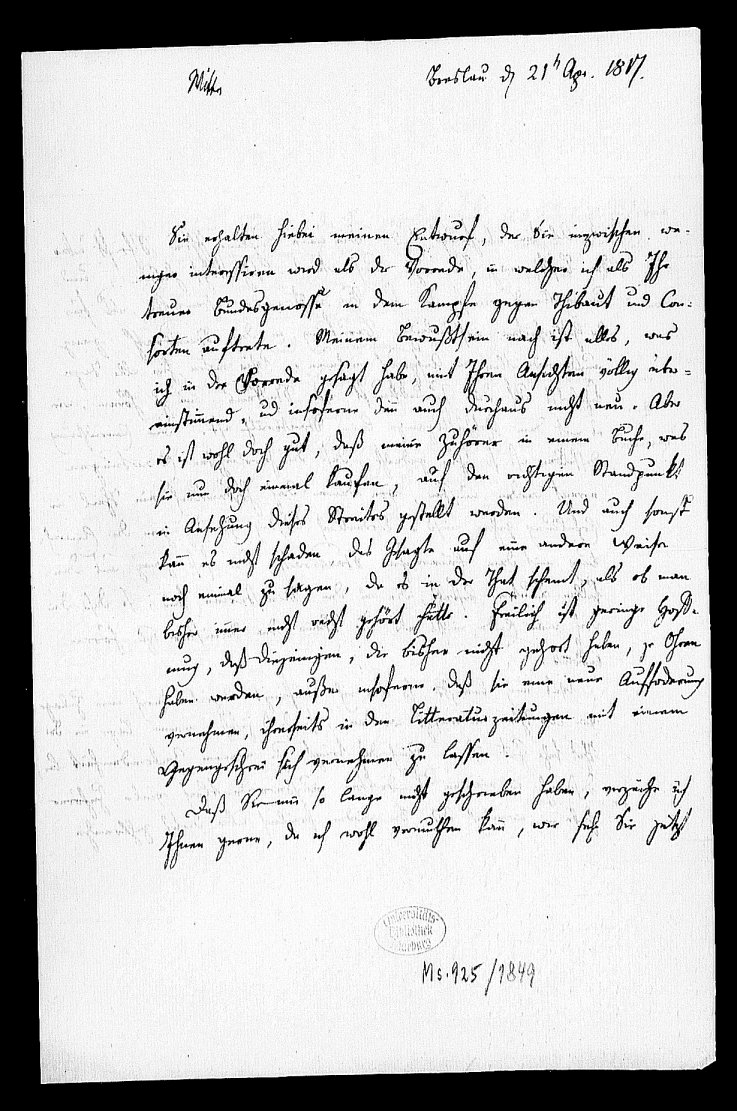 Witte
Breslau d 21t Apr. 1817.
Sie erhalten hiebei meinen Entwurf, der Sie inzwischen we-
niger interessiren wird als die Vorrede, in welcher ich als Ihr
treuer Bundesgenosse in dem Kampfe gegen Thibaut und Con-
sorten auftrete. Meinem Bewußtsein nach ist alles, was
ich in der Vorrede gesagt habe, mit Ihren Ansichten völlig über-
einstimmend, und insoferne denn auch durchaus nicht neu. Aber
es ist wohl doch gut, daß meine Zuhörer in einem Buche, was
sie nun doch einmal kaufen, auf den richtigen Standpunkt
in Ansehung dieses Streites gestellt werden. Und auch sonst
kann es nicht schaden das Gesagte auf eine andere Weise
noch einmal zu sagen, da es in der That scheint, als ob man
bisher immer nicht recht gehört hätte. Freilich ist geringe Hoff-
nung, daß diejenigen, die bisher nicht gehört haben, je Ohren
haben werden, außer insoferne, daß sie eine neue Aufforderung
vernehmen, ihrerseits in den Litteraturzeitungen mit einem
Gegengeschrei sich vernehmen zu lassen.
Daß Sie mir so lange nicht geschrieben haben, verzeihe ich
Ihnen gerne, da ich wohl vermuthen kann, wie sehr Sie jetzt
Universitäts-
Bibliothek
Marburg
Ms. 925/1849